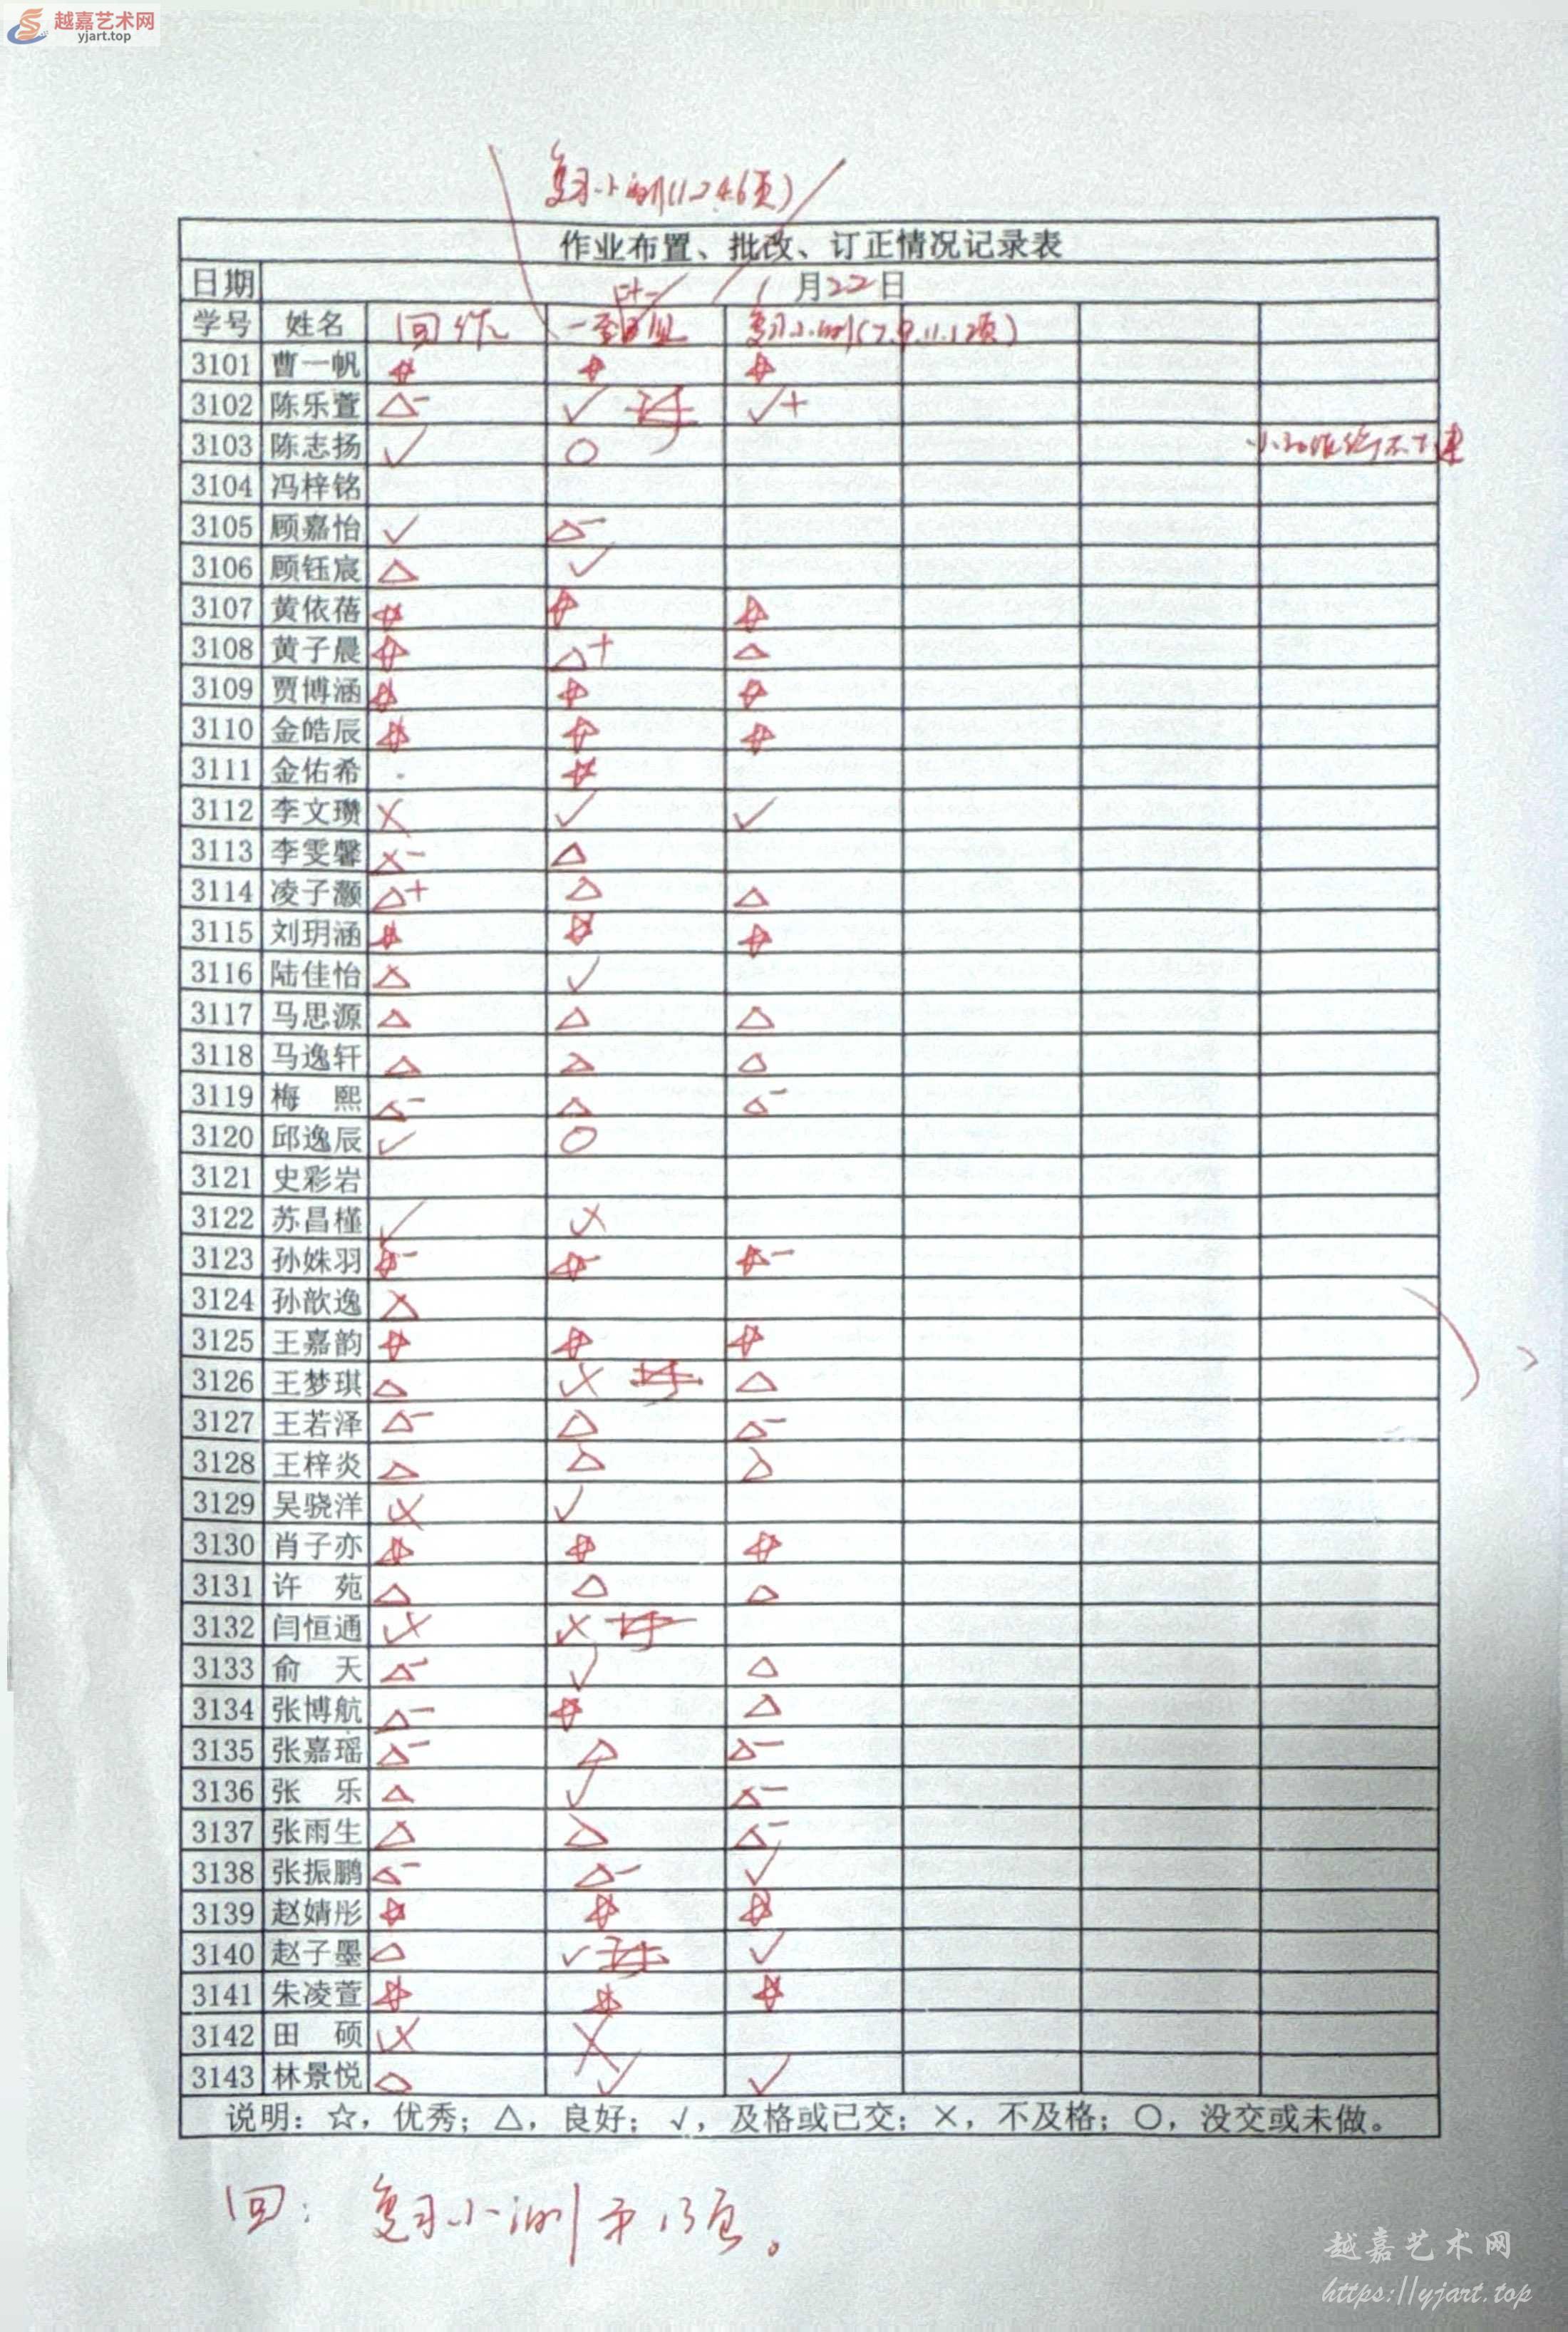 越嘉艺术网
yjart.top
复习小测(1.2.4.6页)
作业布置、批改、订正情况记录表
日期 1月22日
学号 姓名 回作 复习小测(7.9.11.12页)
3101 曹一帆 ☆ ☆ ☆
3102 陈乐萱 △- √ √+
3103 陈志扬 √ ○
3104 冯梓铭
3105 顾嘉怡 √ △-
3106 顾钰宸 △ √
3107 黄依蓓 ☆ ☆ ☆
3108 黄子晨 ☆ △+ △
3109 贾博涵 ☆ ☆ ☆
3110 金皓辰 ☆ ☆ ☆
3111 金佑希 ☆
3112 李文瓒 × √ √
3113 李雯馨 ×- △
3114 凌子灏 △+ △ △
3115 刘玥涵 ☆ ☆ ☆
3116 陆佳怡 △ √
3117 马思源 △ △ △
3118 马逸轩 △ △ △
3119 梅 熙 △- △ △-
3120 邱逸辰 √ ○
3121 史彩岩
3122 苏昌槿 √ ×
3123 孙姝羽 ☆- ☆- ☆-
3124 孙歆逸 △
3125 王嘉韵 ☆ ☆ ☆
3126 王梦琪 △ × △
3127 王若泽 △- △ △-
3128 王梓炎 △ △ △
3129 吴骁洋 × √
3130 肖子亦 ☆ ☆ ☆
3131 许 苑 △ △ △
3132 闫恒通 × ×
3133 俞 天 △- √ △
3134 张博航 △- ☆ △
3135 张嘉瑶 △- △ △-
3136 张 乐 △ √ △-
3137 张雨生 △ △ △-
3138 张振鹏 △- △- √
3139 赵婧彤 ☆ ☆ ☆
3140 赵子墨 △ √ √
3141 朱凌萱 ☆ ☆ ☆
3142 田 硕 × ×
3143 林景悦 △ √ √
说明：☆，优秀；△，良好；√，及格或已交；×，不及格；○，没交或未做。
回：复习小测第13页。
越嘉艺术网
https://yjart.top